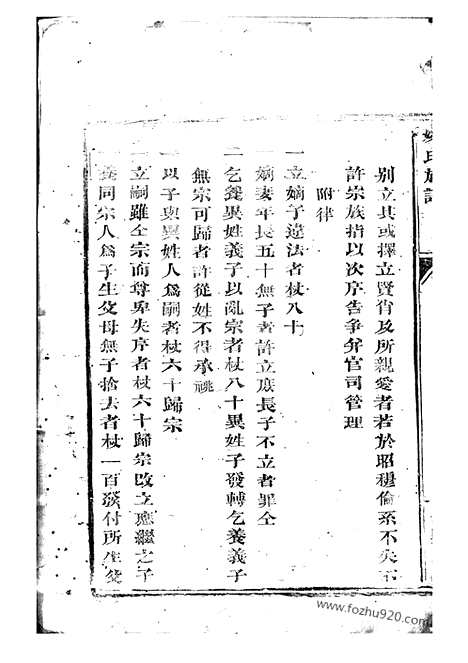 氏族譜
別立其或擇立賢肖及所親愛者若於昭穆倫系不失不
許宗族指以次序告爭弁官司管理
附律
一立嫡子違法者杖八十
嫡妻年長五十無子者許立庶長子不立者罪仝
一乞養異姓義子以亂宗者杖八十異姓子發轉乞養義子
無宗可歸者許從姓不得承祧
一以子與異姓人為嗣者杖六十歸宗
一立嗣雖仝宗而尊卑失序者杖六十歸宗改立應繼之子
一養同宗人為子生父母無子捨去者杖一百發付所生父
www.fozhu920.com